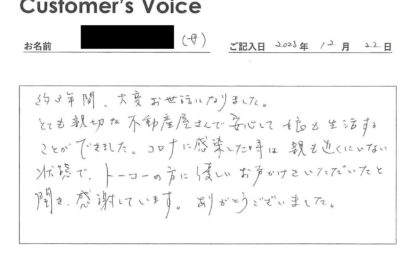 Customer's Voice
お名前 (母) ご記入日 2023 年 12 月 22 日
約3年間、大変お世話になりました。
とても親切な不動産屋さんで安心して娘も生活する
ことができました。コロナに感染した時は親も近くにいない
状態で、トーコーの方に優しいお声がけをいただいたと
聞き、感謝しています。ありがとうございました。